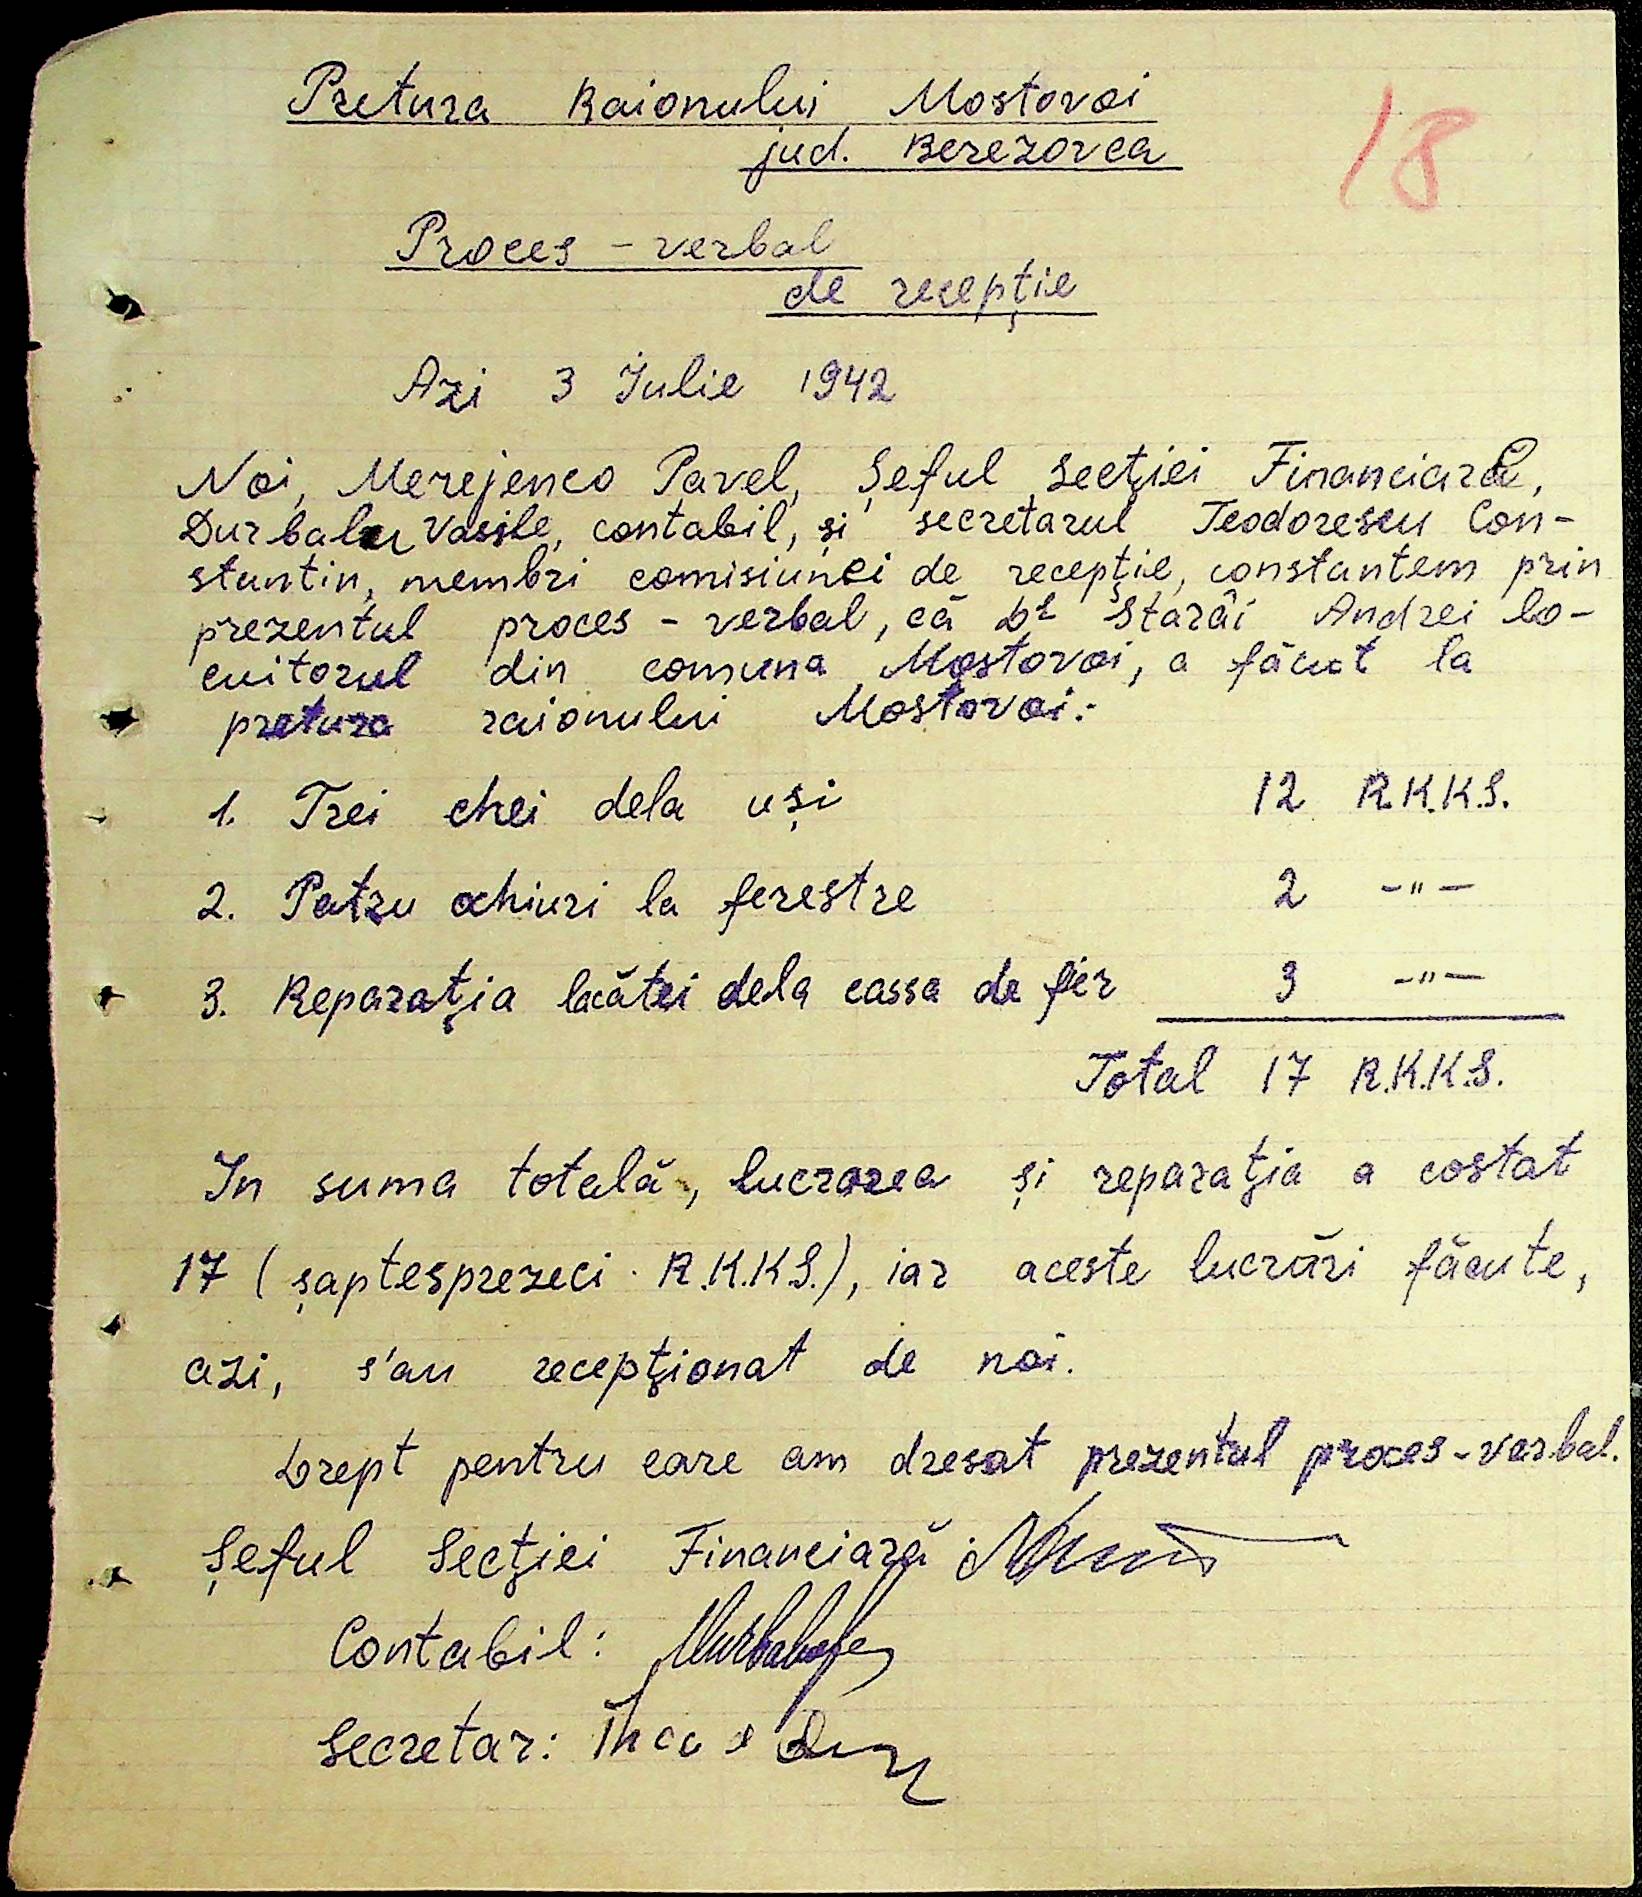 Pretura Raionului Mostovoi
jud. Berezovca
18
Proces - verbal
de recepție
Azi 3 Iulie 1942
Noi, Merejenco Pavel, Șeful Secției Financiară,
Vasile, contabil, și secretarul Teodorescu Con-
stantin, membri comisiunei de recepție, constantem prin
prezentul proces - verbal, că Dl Starâi Andrei lo-
cuitorul din comuna Mostovoi, a făcut la
pretura raionului Mostovoi:-
1. Trei chei dela uși 12 R.K.K.S.
2. Patru ochiuri la ferestre 2 -"-
3. Reparația lacătei dela cassa de fer 3 -"-
Total 17 R.K.K.S.
In suma totală, lucrarea și reparația a costat
17 (șaptesprezeci R.K.K.S.), iar aceste lucrări făcute,
azi, s'au recepționat de noi.
Drept pentru care am dresat prezentul proces-verbal.
Șeful Secției Financiară
Contabil:
Secretar: